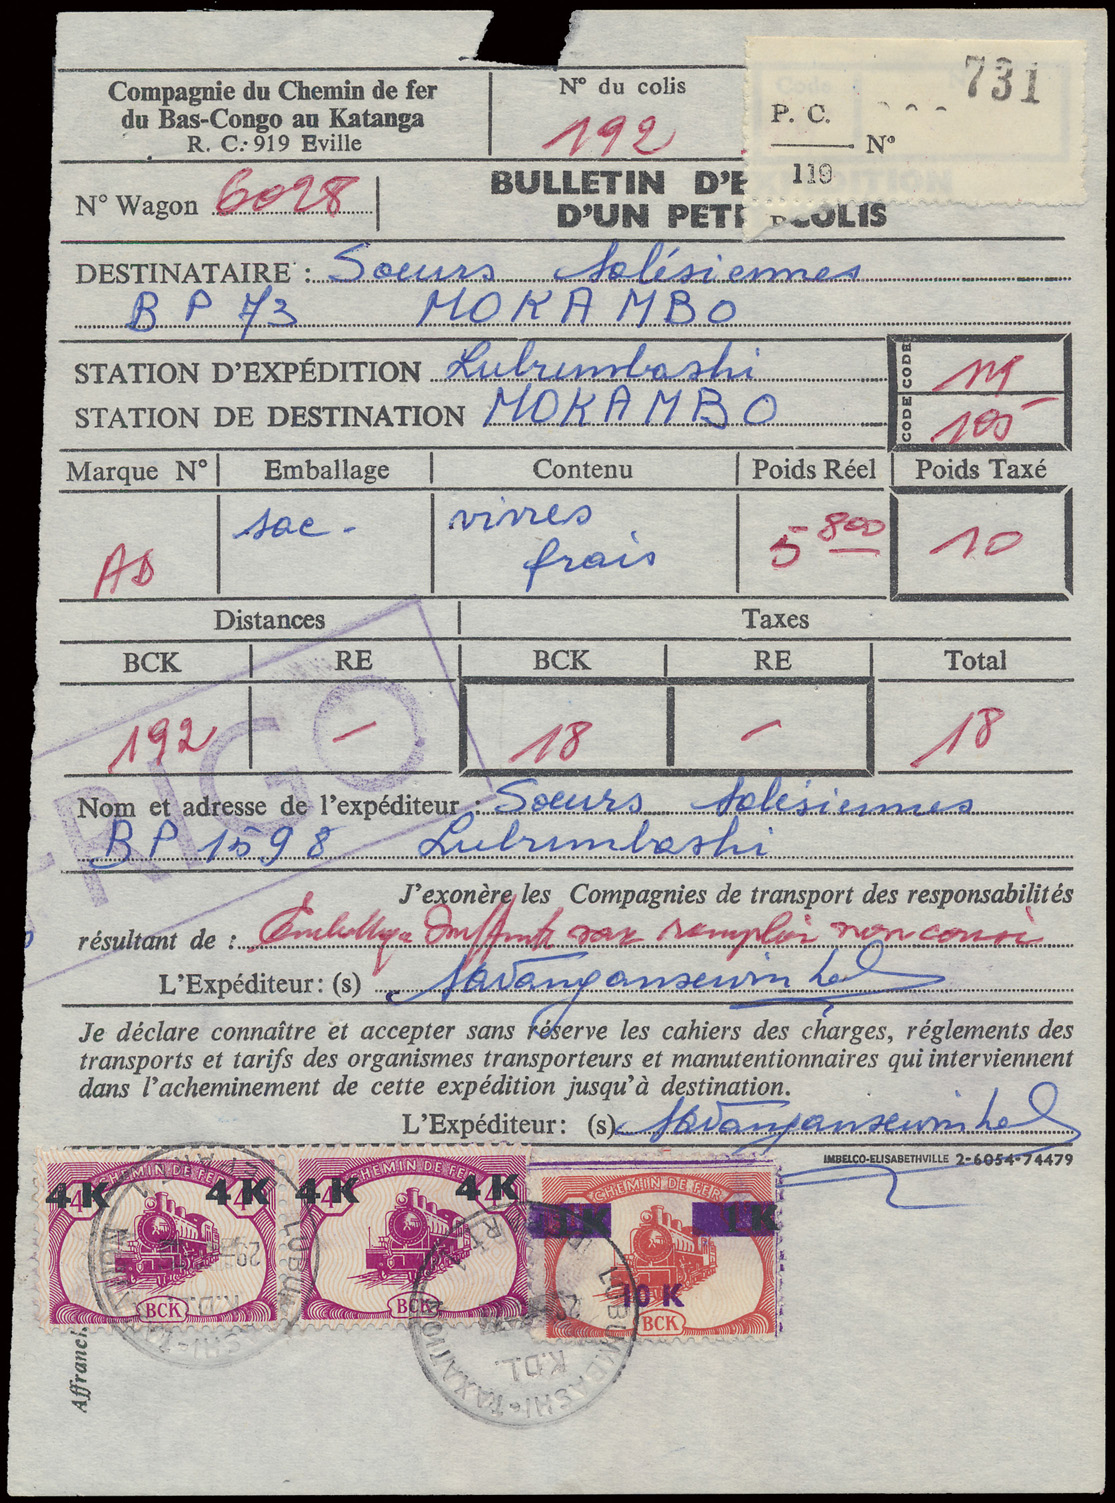 Compagnie du Chemin de fer
du Bas-Congo au Katanga
R. C. 919 Eville
N° du colis
192
731
P. C.
N°
119
N° Wagon 6028
BULLETIN D'EXPÉDITION
D'UN PETIT COLIS
DESTINATAIRE : Soeurs Salésiennes
BP 73 MOKAMBO
STATION D'EXPÉDITION Lubumbashi
CODE 119
STATION DE DESTINATION MOKAMBO
CODE 105
Marque N° Emballage Contenu Poids Réel Poids Taxé
AD sac - vivres frais 5800 10
Distances Taxes
BCK RE BCK RE Total
192 - 18 - 18
Nom et adresse de l'expéditeur : Soeurs Salésiennes
BP 1598 Lubumbashi
FRIGO
J'exonère les Compagnies de transport des responsabilités
résultant de : sac remplis non
L'Expéditeur: (s)
Je déclare connaître et accepter sans réserve les cahiers des charges, réglements des
transports et tarifs des organismes transporteurs et manutentionnaires qui interviennent
dans l'acheminement de cette expédition jusqu'à destination.
L'Expéditeur: (s)
IMBELCO-ELISABETHVILLE 2-6054-74479
CHEMIN DE FER
4 K 4 K
BCK
CHEMIN DE FER
4 K 4 K
BCK
CHEMIN DE FER
1 K 1 K
10 K
BCK
LUBUMBASHI-TAXATION
K.D.L.
LUBUMBASHI-TAXATION
K.D.L.
Affranch